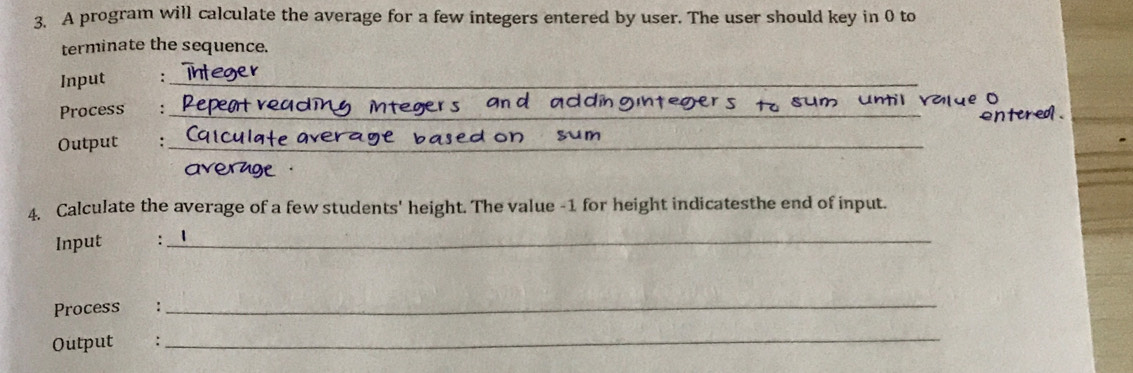 3. A program will calculate the average for a few integers entered by user. The user should key in 0 to
terminate the sequence.
Input : integer
Process : Repeat reading integers and adding integers to sum until value 0
entered.
Output : Calculate average based on sum
average.
4. Calculate the average of a few students' height. The value -1 for height indicatesthe end of input.
Input : I
Process :
Output :